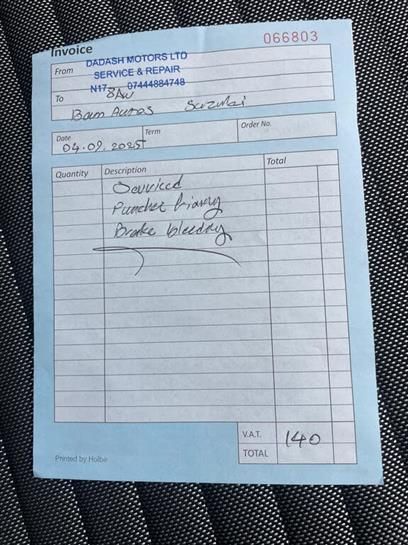 Invoice
066803
From
DADASH MOTORS LTD
SERVICE & REPAIR
N17 8AW 07444884748
To
Bam Autos Suzuki
Date
Term
Order No.
04.09.2025
Quantity Description Total
Serviced
Puncher
Brake bleeding
V.A.T.
140
TOTAL
Printed by Holbe